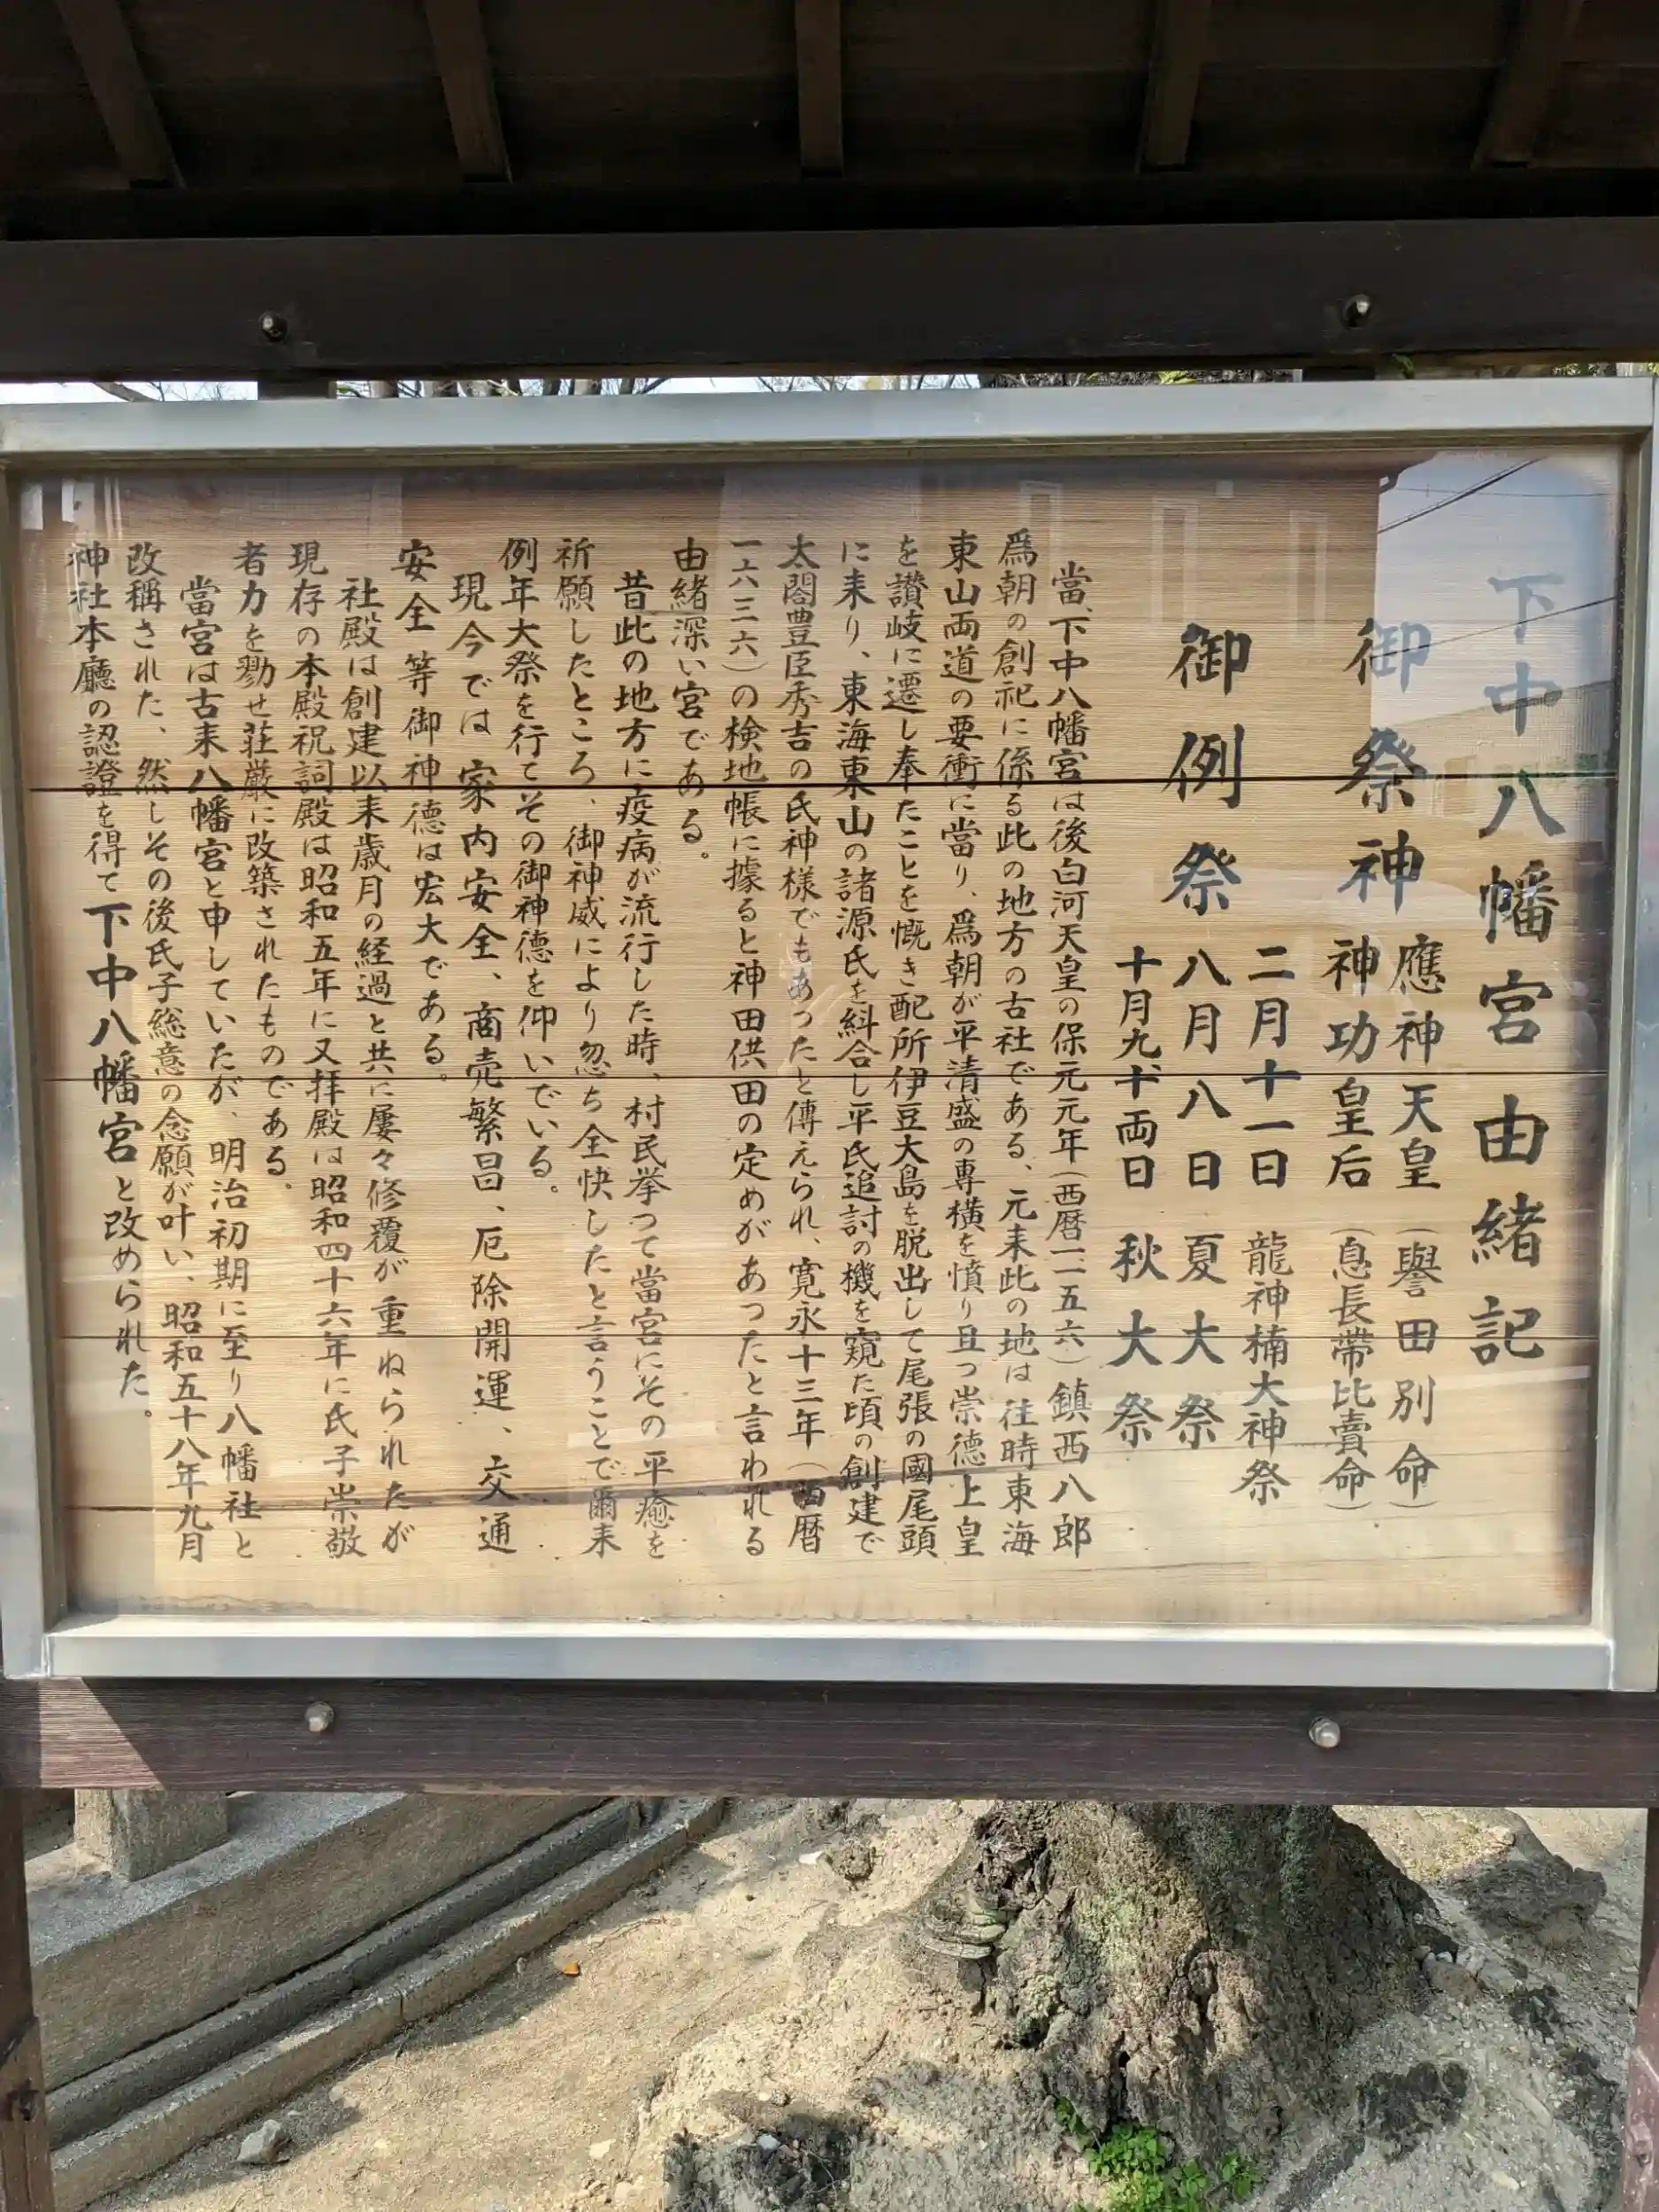 下中八幡宮由緒記
御祭神 應神天皇(譽田別命)
神功皇后(息長帶比賣命)
御例祭 二月十一日 龍神楠大神祭
八月八日 夏大祭
十月九十両日 秋大祭
當、下中八幡宮は後白河天皇の保元元年(西暦一一五六)鎮西八郎
爲朝の創祀に係る此の地方の古社である、元来此の地は往時東海
東山両道の要衝に當り、爲朝が平清盛の専横を憤り且つ崇徳上皇
を讃岐に遷し奉たことを慨き配所伊豆大島を脱出して尾張の國尾頭
に来り、東海東山の諸源氏を糾合し平氏追討の機を窺た頃の創建で
太閤豊臣秀吉の氏神様でもあったと傳えられ、寛永十三年(西暦
一六三六)の検地帳に據ると神田供田の定めがあったと言われる
由緒深い宮である。
昔此の地方に疫病が流行した時、村民挙つて當宮にその平癒を
祈願したところ、御神威により忽ち全快したと言うことで爾来
例年大祭を行てその御神徳を仰いでいる。
現今では家内安全、商売繁昌、厄除開運、交通
安全等御神徳は宏大である。
社殿は創建以来歳月の経過と共に屢々修覆が重ねられたが
現存の本殿祝詞殿は昭和五年に又拝殿は昭和四十六年に氏子崇敬
者力を勠せ荘厳に改築されたものである。
當宮は古来八幡宮と申していたが、明治初期に至り八幡社と
改稱された、然しその後氏子総意の念願が叶い、昭和五十八年九月
神社本廳の認證を得て下中八幡宮と改められた。